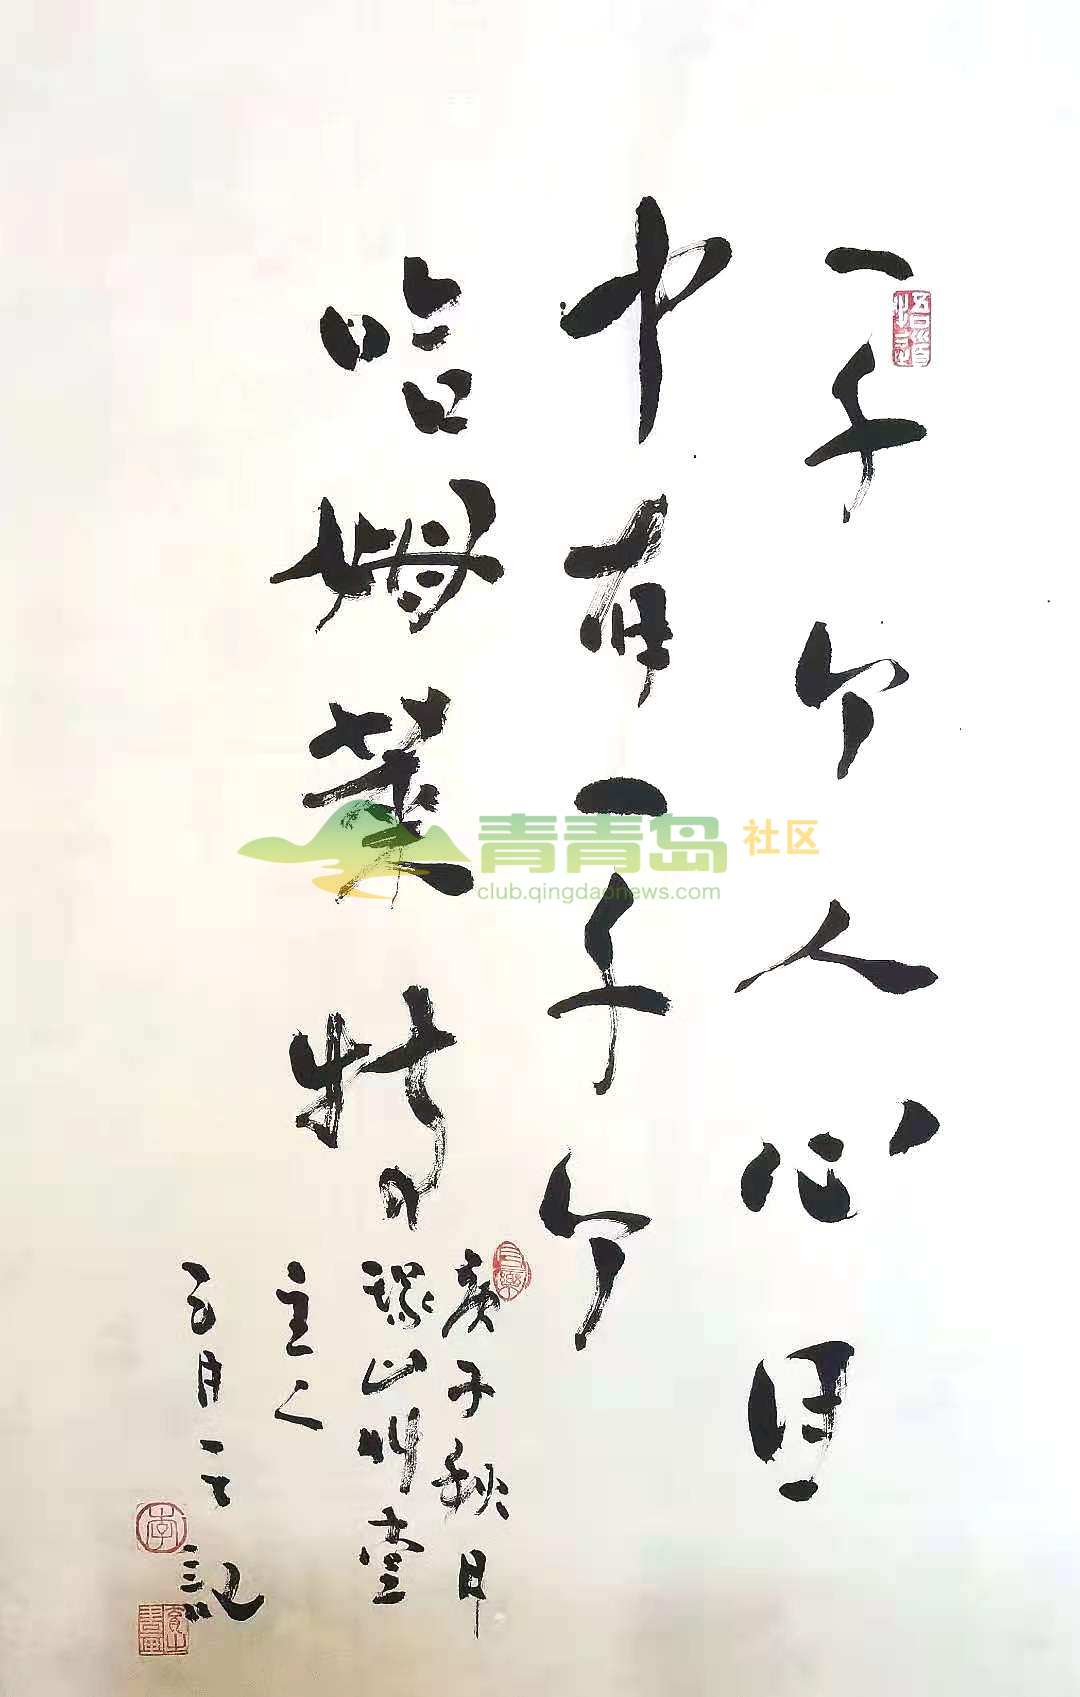 一千个人心目
中有一千个
哈姆莱特
庚子秋日
山堂
主人
月记
青青岛社区
club.qingdaonews.com